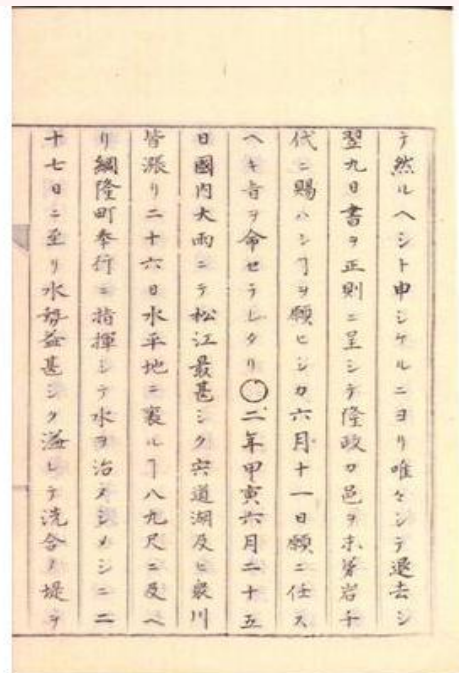 テ然ルヘシト申シケルニヨリ唯々シテ退去シ
翌九日書ヲ正則ニ呈シテ隆政カ邑ヲ末弟岩千
代ニ賜ハンヿヲ願ヒシカ六月十一日願ニ任ス
ヘキ旨ヲ命セラレタリ〇二年甲寅六月二十五
日國内大雨ニテ松江最甚シク宍道湖及ヒ衆川
皆漲リ二十六日水平地ニ襄ルヿ八九尺ニ及ヘ
リ綱隆町奉行ニ指揮シテ水ヲ治メシメシニ二
十七日ニ至リ水勢益甚シク溢レテ洗合ノ堤ヲ